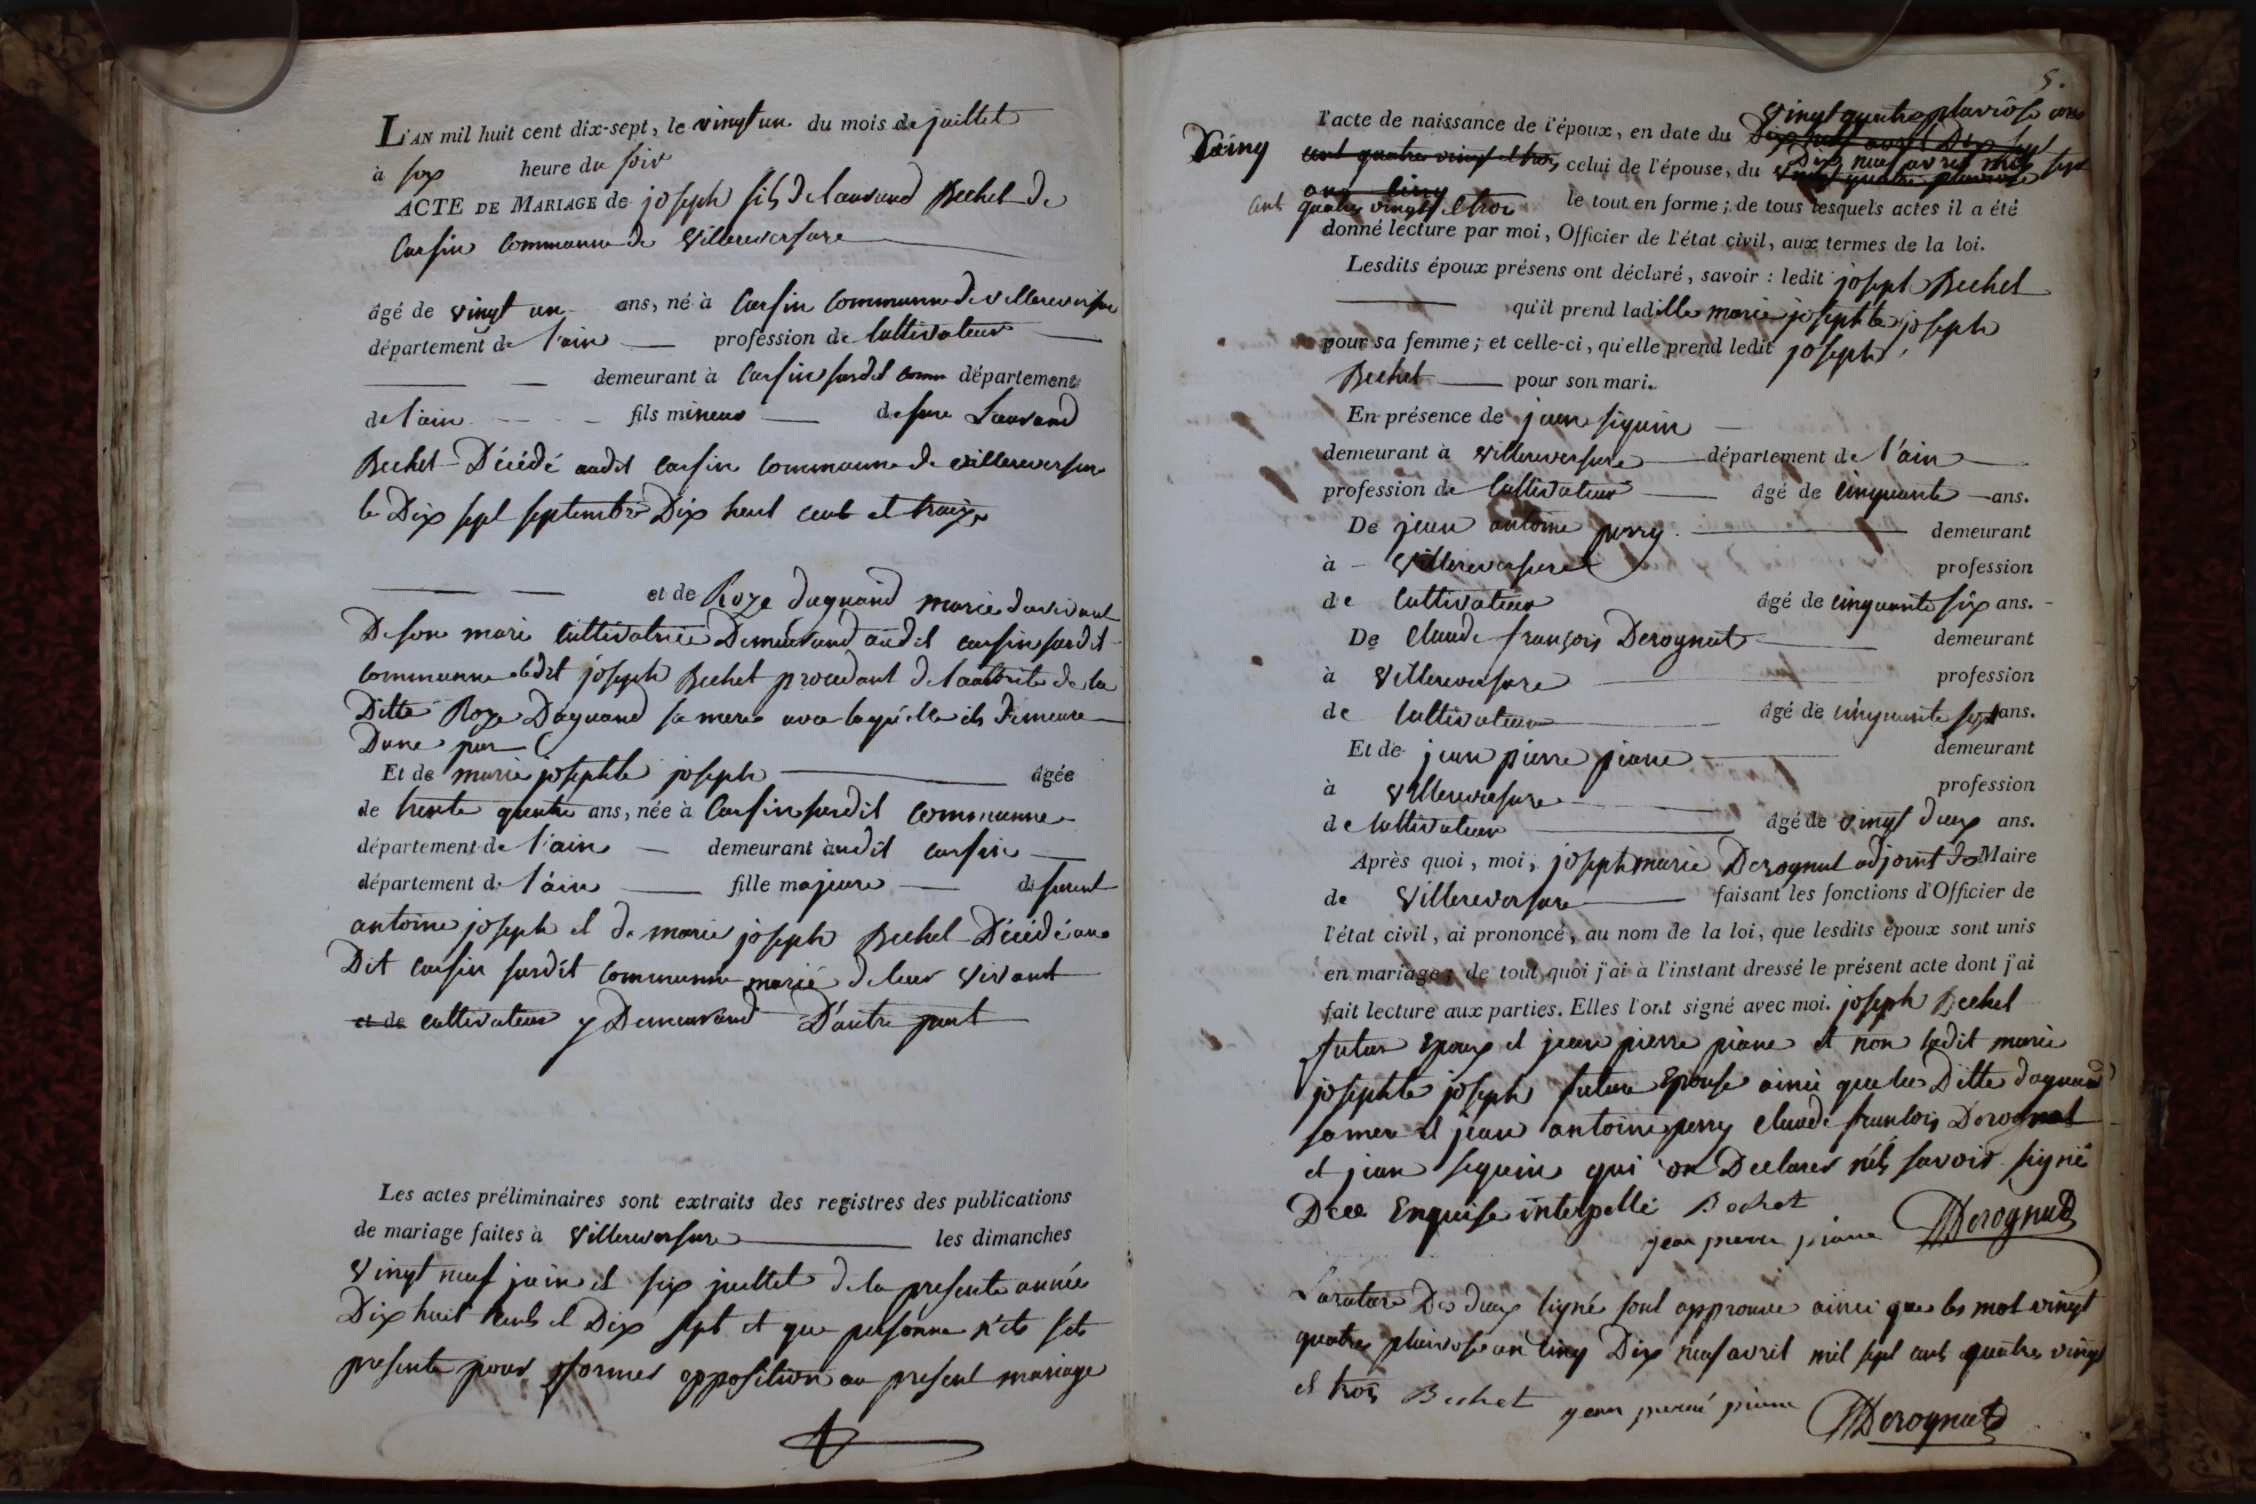 L'AN mil huit cent dix-sept, le vingt un du mois de juillet
à six heure du soir
ACTE DE MARIAGE de joseph fils de laurand Bechet de
Corsin Commune de Villereversure
âgé de vingt un ans, né à Corsin Commune de villereversure
département de l'ain profession de Cultivateur
demeurant à Corsin surdit comm département
de l'ain fils mineur de feu Laurand
Bechet Décédé audit Corsin commune de villereversure
le Dix sept septembre Dix huit cent et traize
et de Roze daguand marie du vivant
De son mari Cultivatrice Demeurand audit corsin surdit
commune ledit joseph Bechet procedant de l'autorite de la
Ditte Roze Daguand sa mere avec laquelle ils Demeure
Dune part
Et de marie josephte joseph âgée
de trente quatre ans, née à Corsin surdit commune
département de l'ain demeurant audit corsin
département de l'ain fille majeure de furent
antoine joseph et de marie joseph Bechet Décédé au
Dit corsin surdit commune marié de leur vivant
et de cultivateur y Demeurand D'autre part
Les actes préliminaires sont extraits des registres des publications
de mariage faites à Villereversure les dimanches
Vingt neuf juin et six juillet de la presente année
Dix huit cents et Dix sept et que personne n'ets sets
presente pour formes opposition au present mariage
5.
l'acte de naissance de l'époux, en date du vingt quatre pluviôse ans
cinq cent quatre vingt et trois, celui de l'épouse, du Dix neuf avril mil sept
cent quatre vingt et trois le tout en forme; de tous lesquels actes il a été
donné lecture par moi, Officier de l'état civil, aux termes de la loi.
Lesdits époux présens ont déclaré, savoir : ledit joseph Bechet
qu'il prend ladille marie josephte joseph
pour sa femme; et celle-ci, qu'elle prend ledit joseph
Bechet pour son mari.
En présence de jean siguin
demeurant à Villereversure département de l'ain
profession de Cultivateur âgé de cinquante ans.
De jean antoine perry demeurant
à Villereversure profession
de Cultivateur âgé de cinquante six ans.
De Claude françois Derognat demeurant
à Villereversure profession
de Cultivateur âgé de cinquante sept ans.
Et de jean pierre piane demeurant
à Villereversure profession
de Cultivateur âgé de vingt deux ans.
Après quoi, moi, joseph marie Derognat adjoint du Maire
de Villereversure faisant les fonctions d'Officier de
l'état civil, ai prononcé, au nom de la loi, que lesdits époux sont unis
en mariage; de tout quoi j'ai à l'instant dressé le présent acte dont j'ai
fait lecture aux parties. Elles l'ont signé avec moi. joseph Bechet
futur Epoux et jean pierre piane et non ladit marie
josephte joseph future Epouse ainci que la Ditte daguand
sa mere et jean antoine perry Claude francois Derognat
et jean seguin qui on Declarer n'ets savoir signé
Dece Enquise interpellé Bechet
jean pierre piane Derognat
Larature Des deux ligné sont approuve ainci que les mot vingt
quatre pluviose an cinq Dix neuf avril mil sept cent quatre vingt
et trois Bechet jean pierre piane Derognat